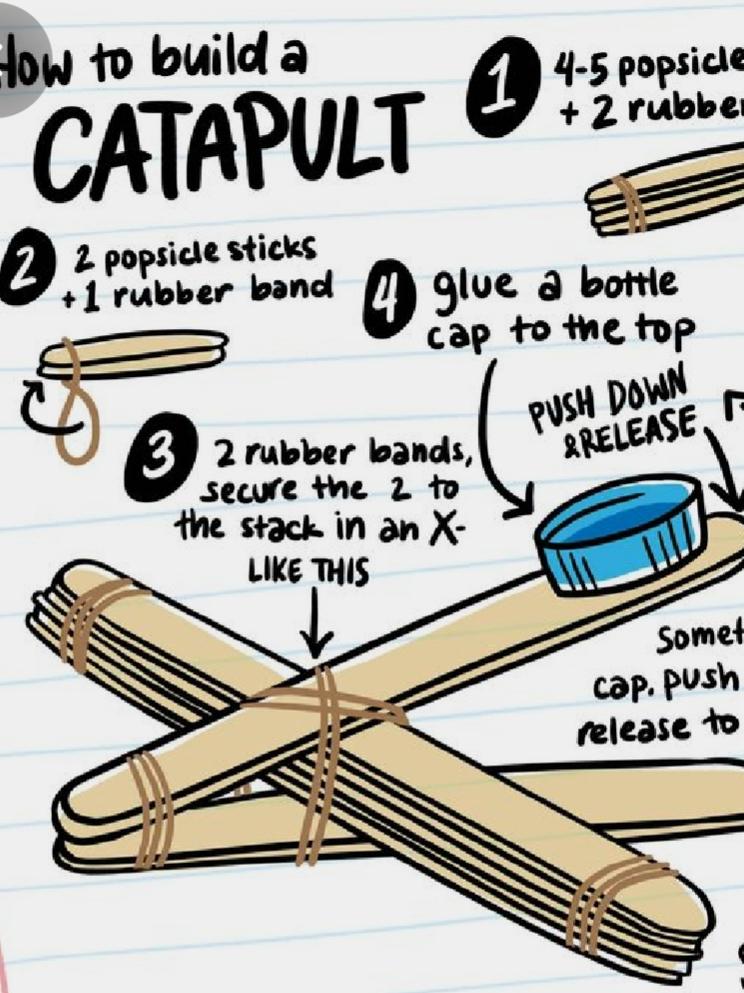 How to build a
CATAPULT
1 4-5 popsicle
+ 2 rubber
2 2 popsicle sticks
+1 rubber band
4 glue a bottle
cap to the top
PUSH DOWN
&RELEASE
3 2 rubber bands,
secure the 2 to
the stack in an X-
LIKE THIS
cap. push
release to